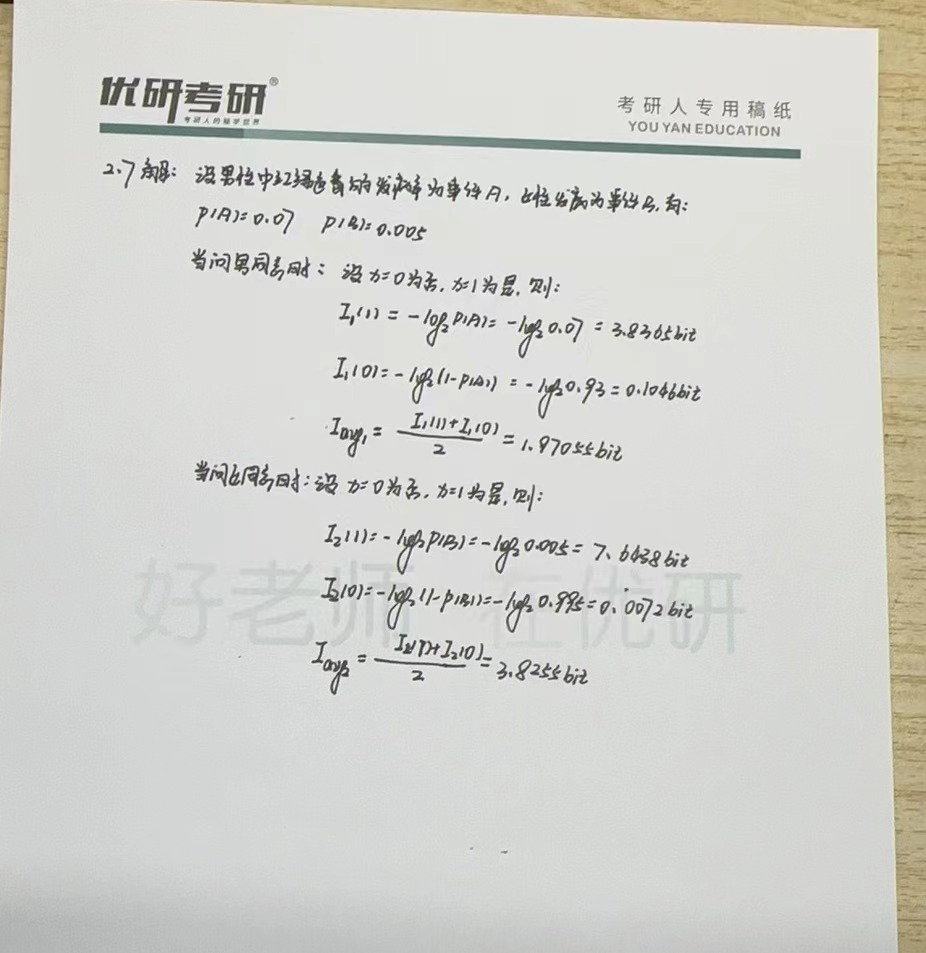 优研考研®
考研人的精学世界
考研人专用稿纸
YOU YAN EDUCATION
2.7 解: 设男性中红绿色盲的发病率为事件A, 女性发病为事件B, 有:
P(A)=0.07 P(B)=0.005
当问男同志时: 设x=0为否, x=1为是, 则:
I₁(1) = -log₂P(A)= -log₂0.07 = 3.8365bit
I₁(0)= -log₂(1-P(A)) = -log₂0.93=0.1046bit
Iavg₁ = (I₁(1)+I₁(0))/2 = 1.97055bit
当问女同志时: 设x=0为否, x=1为是, 则:
I₂(1)= -log₂P(B)= -log₂0.005= 7.6438bit
I₂(0)= -log₂(1-P(B))= -log₂0.995=0.0072bit
Iavg₂ = (I₂(1)+I₂(0))/2 = 3.8255bit
好老师 在优研